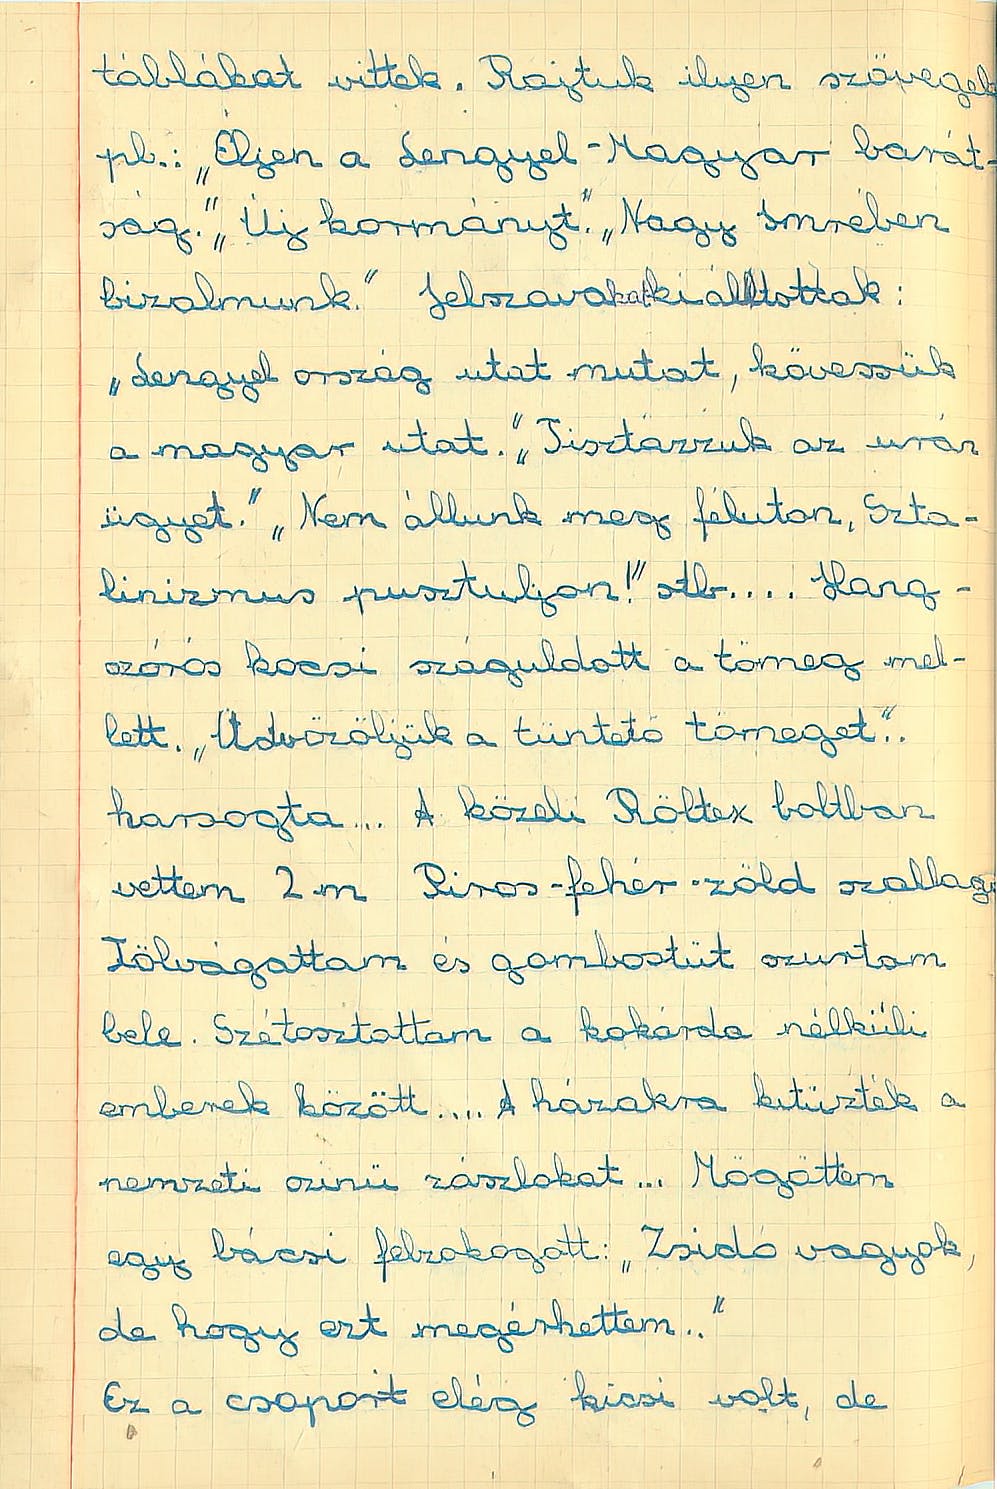 táblákat vittek. Rajtuk ilyen szövegek
pl.: „Éljen a Lengyel-Magyar barát-
ság.” „Új kormányt.” „Nagy Imrében
bizalmunk.” Jelszavakat kiálltottak:
„Lengyel ország utat mutat, kövessük
a magyar utat.” „Tisztázzuk az urán
ügyet.” „Nem állunk meg féluton, Szta-
linizmus pusztuljon!” stb.... Hang-
szórós kocsi száguldott a tömeg mel-
lett. „Üdvözöljük a tüntető tömeget”..
harsogta... A közeli Röltex boltban
vettem 2 m Piros-fehér-zöld szallag
Fölvágattam és gombostüt szurtam
bele. Szétosztottam a kokárda nélküli
emberek között.... A házakra kitüzték a
nemzeti szinü zászlokat... Mögöttem
egy bácsi felzokogott: „Zsidó vagyok,
de hogy ezt megérhettem..”
Ez a csoport elég kicsi volt, de